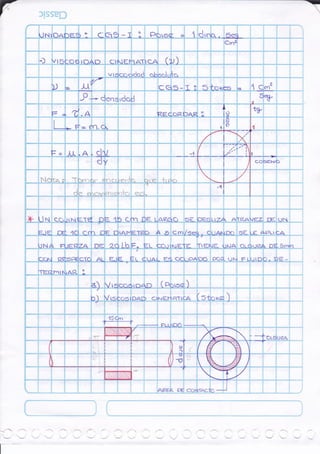 Classic
UNIDADES : CGS-I : Poise = 1 dina . seg
Cm²
→) VISCOSIDAD CINEMATICA (ν)
viscosidad absoluta
ν = μ
ρ → densidad
CGS-I : Stokes = 1 Cm²
Seg
F = τ.A
F = m.a
RECORDAR :
SENO
tg
1
-1
1
-1
COSENO
F = μ.A. dv
dy
Nota : Tomar en cuenta que tipo
de movimiento es.
* UN COJINETE DE 15 cm DE LARGO SE DESLIZA ATRAVEZ DE UN
EJE DE 10 cm DE DIAMETRO A 8 cm/seg, CUANDO SE LE APLICA
UNA FUERZA DE 20 LbF, EL COJINETE TIENE UNA OLGURA DE 5mm
CON RESPECTO AL EJE, EL CUAL ES OCUPADO POR UN FLUIDO. DE-
TERMINAR :
a) VISCOSIDAD (POISE)
b) VISCOSIDAD CINEMATICA (STOKE)
15 Cm
FLUIDO
OLGURA
d EJE
AREA DE CONTACTO